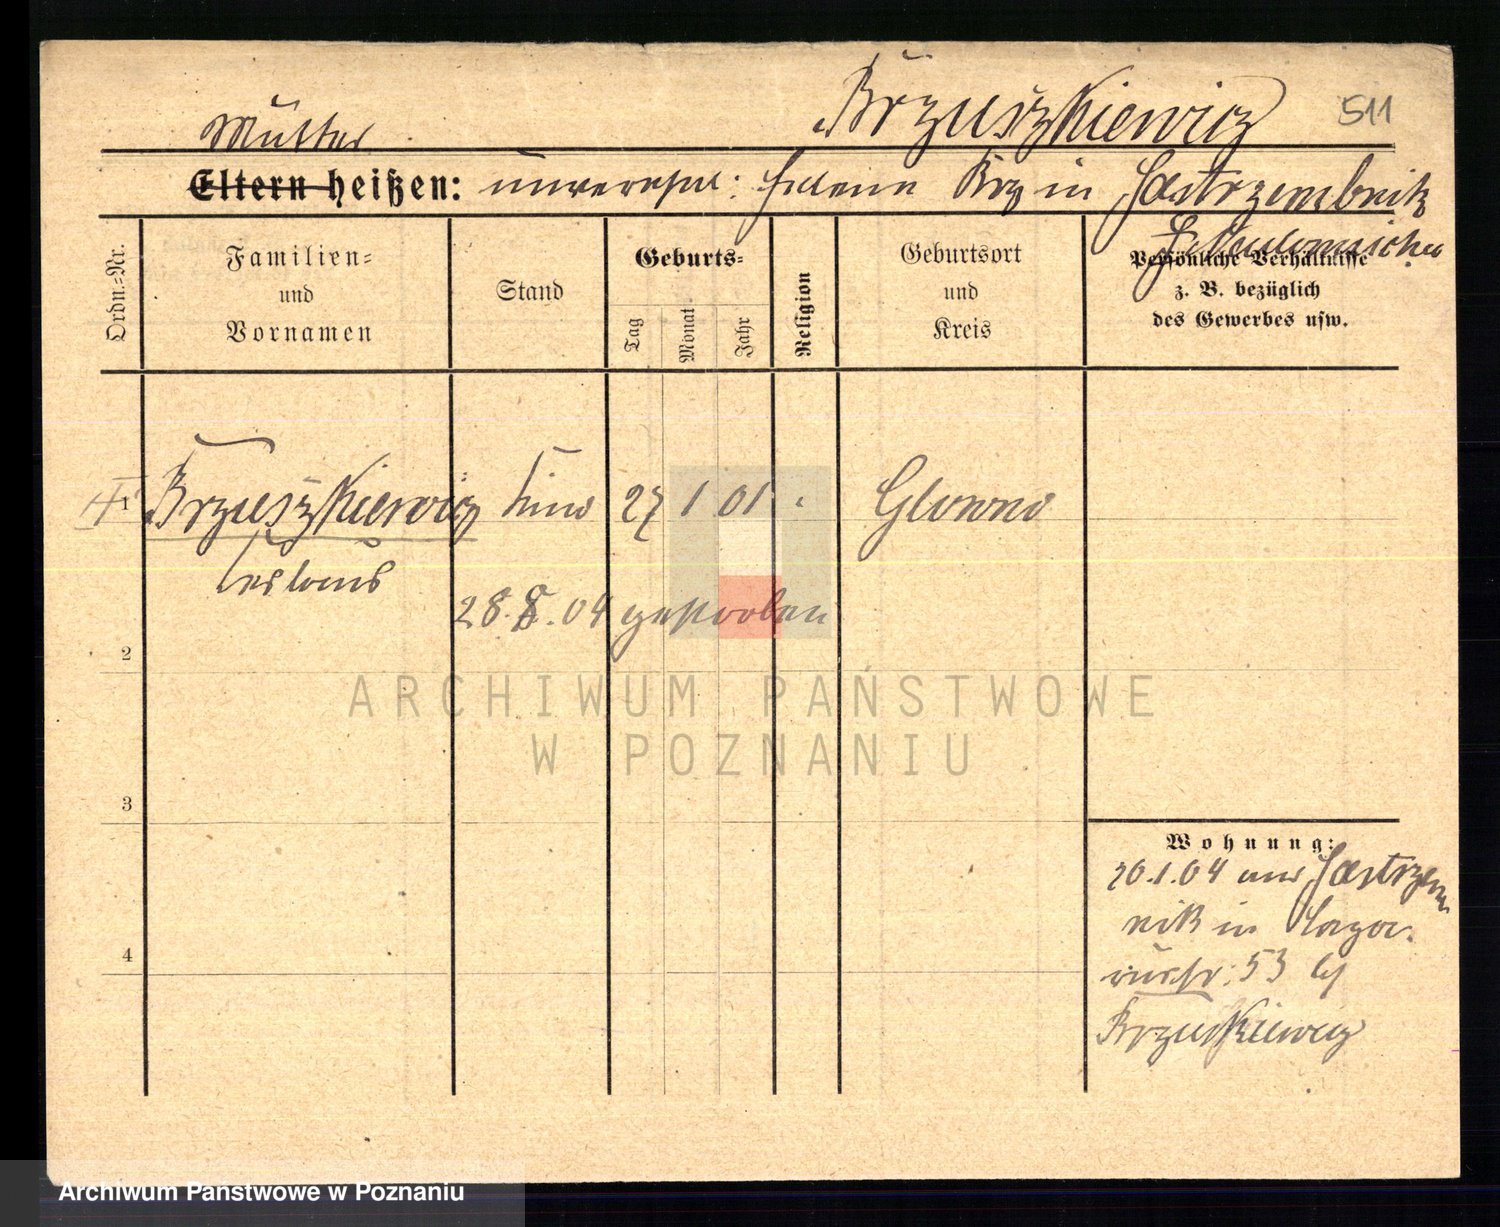 Brzuszkiewicz 511
Mutter
Eltern heißen: unverehel: Helene Brz in Jastrzembnik
Persönliche Verhältnisse
z. B. bezüglich
des Gewerbes usw.
Ordn.=Nr.
Familien=
und
Vornamen
Stand
Geburts=
Tag
Monat
Jahr
Religion
Geburtsort
und
Kreis
1 Brzuszkiewicz Kind 27 1 01 Glowno
28.8.04 gestorben
2
3
4
ARCHIWUM PAŃSTWOWE
W POZNANIU
Wohnung:
20.1.04 aus Jastrzem
nik in
53 bei
Brzuskiewicz
Archiwum Państwowe w Poznaniu